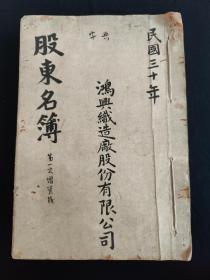 民國三十年
鴻興織造廠股份有限公司
股東名簿
第一次增資後